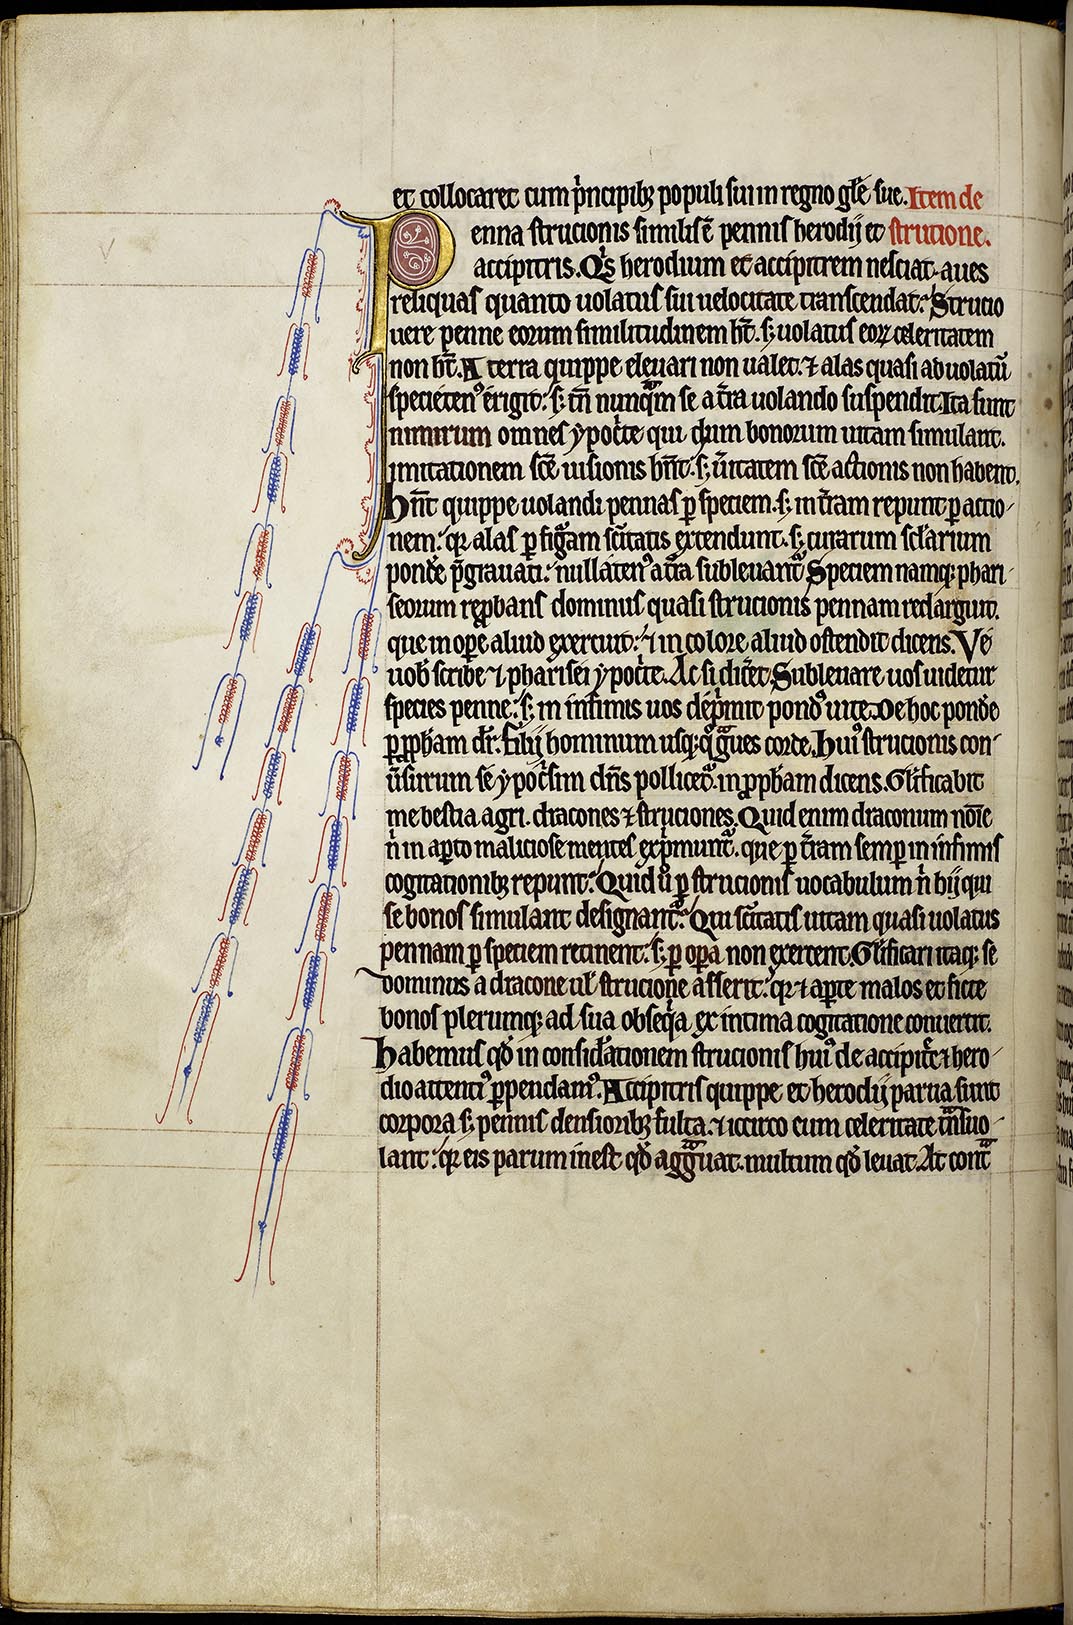 et collocaret cum pⁱncipibꝫ populi sui in regno gl̄e sue. Item de
Penna strucionis similis ē pennis herodij et strucione.
accipitris. Qͥs herodium et accipitrem nesciat. aues
reliquas quanto uolatus sui uelocitate transcendat. Strucio
uere penne eorum similitudinem hꝫ̄. sꝫ uolatus eoꝝ celeritatem
non hꝫ̄. A terra quippe eleuari non ualet. ⁊ alas quasi ad uolatū
specieten᾽ erigit. sꝫ tn̄ nunqᵃm se a t̄ra uolando suspendit. Ita sunt
nimirum omnes ypoc̄te qui dum bonorum uitam simulant.
imitationem sc̄e uisionis hn̄t. sꝫ ūitatem sc̄e actionis non habent.
Hn̄t quippe uolandi pennas ꝑ speciem. sꝫ in t̄ram repunt ꝑ actio-
nem. qꝛ alas ꝑ figᵃm sc̄itatis extendunt. sꝫ curarum sc̄larium
pondē pᵃgrauati. nullaten᾽ a t̄ra subleuant᷑. Speciem namqꝫ phari-
seorum reꝓbans dominus quasi strucionis pennam redarguit.
que in oꝑe aliud exercuit. ⁊ in colore aliud ostendit dicens. Ve
uob̄ scribe ⁊ pharisei ypoc̄te. Ac si dic̄et. Subleuare uos uidetur
species penne. sꝫ in infimis uos depⁱmit pond᾽ uite. De hoc pondē
ꝑ ꝓph̄am dr̄. Filij hominum usqꝫ qͦ gᵃues corde. Hui᾽ strucionis con-
ūsurum se ypoc̄sim dn̄s pollicet᷑. in ꝓph̄am dicens. Gl̄ificabit
me bestia agri. dracones ⁊ struciones. Quid enim draconum noīe
nⁱ in aꝑto maliciose mentes expⁱmunt᷑. que ꝑ t̄ram semꝑ in infimis
cogitationibꝫ repunt. Quid ū ꝑ strucionis uocabulum nⁱ hij qui
se bonos simulant designant᷑. Qui sc̄itatis uitam quasi uolatus
pennam ꝑ speciem retinent. sꝫ ꝑ oꝑa non exercent. Gl̄ificari itaqꝫ se
dominus a dracone ul̄ strucione asserit. qꝛ ⁊ aꝑte malos et ficte
bonos plerumqꝫ ad sua obseqⁱa ex intima cogitatione conuertit.
Habemus qd̄ in considāationem strucionis hui᾽ de accipit̄e ⁊ hero-
dio attenti᾽ ꝑpendam᾽. Accipitris quippe et herodij parua sunt
corpora sꝫ pennis densioribꝫ fulta. ⁊ iccirco cum celeritate tᵃnsuo-
lant. qꝛ eis parum inest qd̄ aggᵃuat. multum qd̄ leuat. At contᵃ